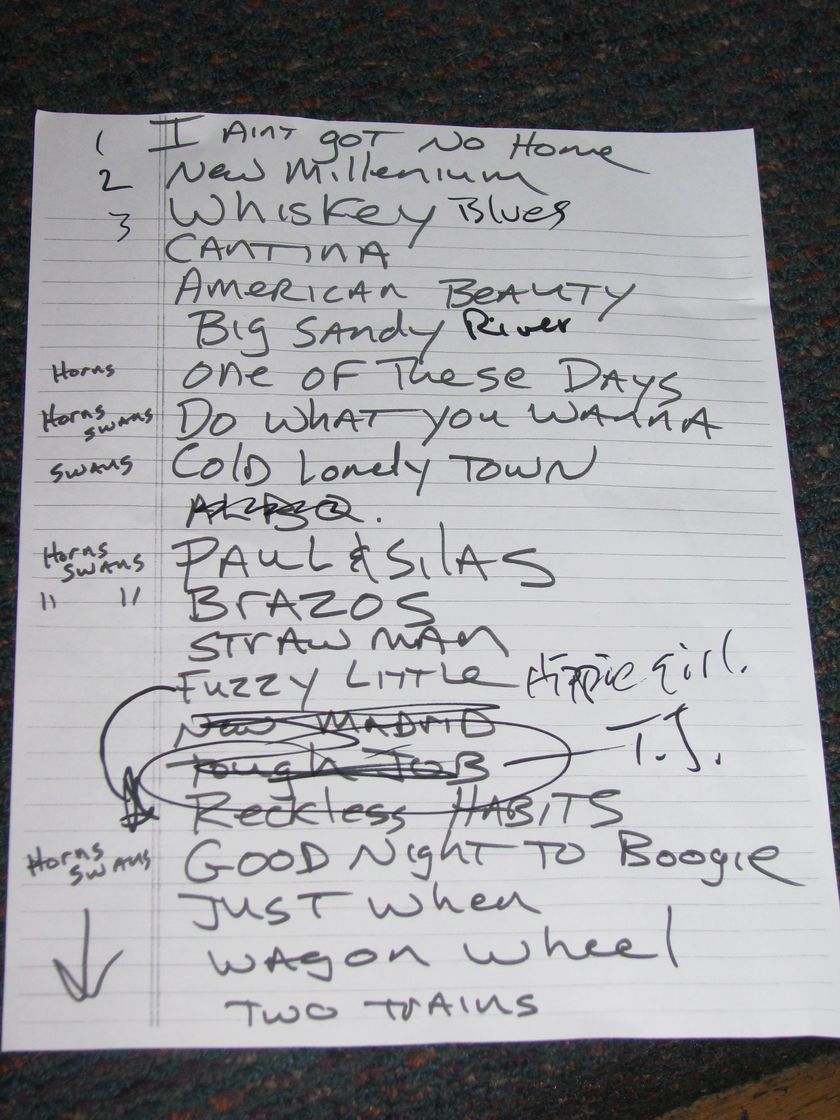 1 I Aint got No Home
2 New Millenium
3 Whiskey Blues
CANTINA
AMERICAN BEAUTY
Big Sandy River
Horns One OF These DAYS
Horns Swans Do WHAT you WANNA
Swans Cold Lonely TOWN
Horns Swans PAUL & SILAS
" " BrAZOS
STRAW MAN
Fuzzy LITTLE Hippie Girl.
New MADRID
Tough JOB T.J.
Reckless HABITS
Horns Swans GOOD Night TO Boogie
JUST When
WAgon Wheel
Two TrAINS